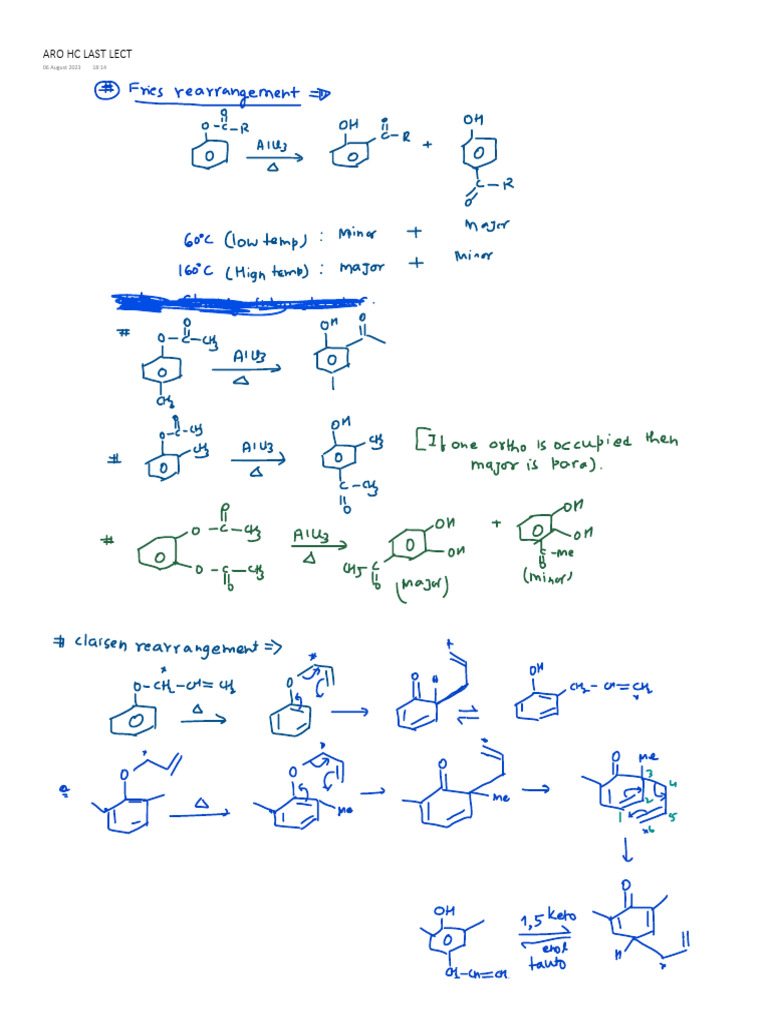 ARO HC LAST LECT
06 August 2023 18:14
# Fries rearrangement ⇒
O-C-R
O
AlCl3
Δ
OH
C-R
+
OH
C-R
O
60°C (low temp) : Minor + Major
160°C (High temp) : major + Minor
# O-C-CH3
O
CH3
AlCl3
Δ
OH
O
# O-C-CH3
CH3
AlCl3
Δ
OH
CH3
C-CH3
O
[If one ortho is occupied then
major is para).
# O-C-CH3
O
O-C-CH3
O
AlCl3
Δ
OH
OH
CH3-C
O
(major)
+
OH
OH
C-Me
O
(minor)
# Claisen rearrangement ⇒
O-CH2-CH=CH2
*
Δ
O
*
O
H
*
OH
CH2-CH=CH2
*
O
*
Δ
O
*
Me
O
*
Me
O
Me
3
4
2
1
5
*6
OH
CH2-CH=CH2
1,5 Keto
enol
tauto
O
H
*